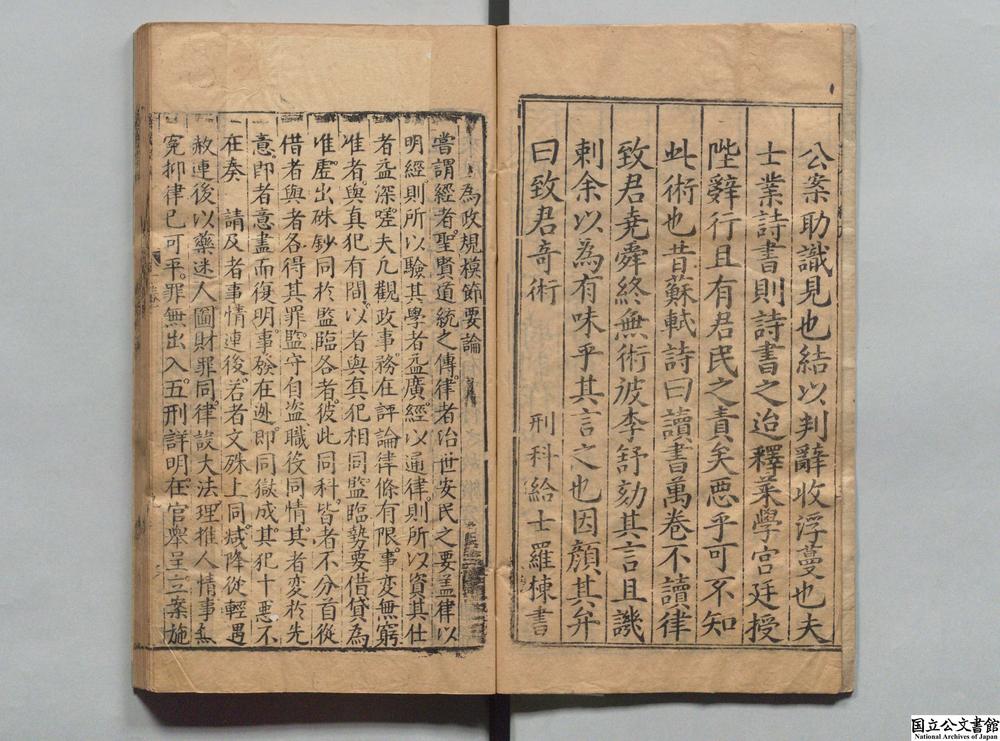 公案助識見也結以判辭收浮蔓也夫
士業詩書則詩書之迨釋菜學宮廷授
陛辭行且有君民之責矣惡乎可不知
此術也昔蘇軾詩曰讀書萬卷不讀律
致君堯舜終無術彼李舒劾其言且譏
刺余以為有味乎其言之也因顏其弁
曰致君奇術
刑科給士羅棟書
為政規模節要論
嘗謂經者聖賢道統之傳律者治世安民之要盖律以
明經則所以驗其學者益廣經以通律則所以資其仕
者益深嗟夫凡觀政事務在評論律條有限事變無窮
准者與真犯有間以者與真犯相同監臨勢要借貸為
准虛出硃鈔同於監臨各者彼此同科皆者不分首從
借者與者各得其罪監守自盜職役同情其者變於先
意即者意盡而復明事發在迯即同獄成其犯十惡不
在奏 請及者事情連後若者文殊上同减降從輕遇
赦連後以藥迷人圖財罪同律設大法理推人情事無
寃抑律已可平罪無出入五刑詳明在官舉呈立案施
国立公文書館
National Archives of Japan